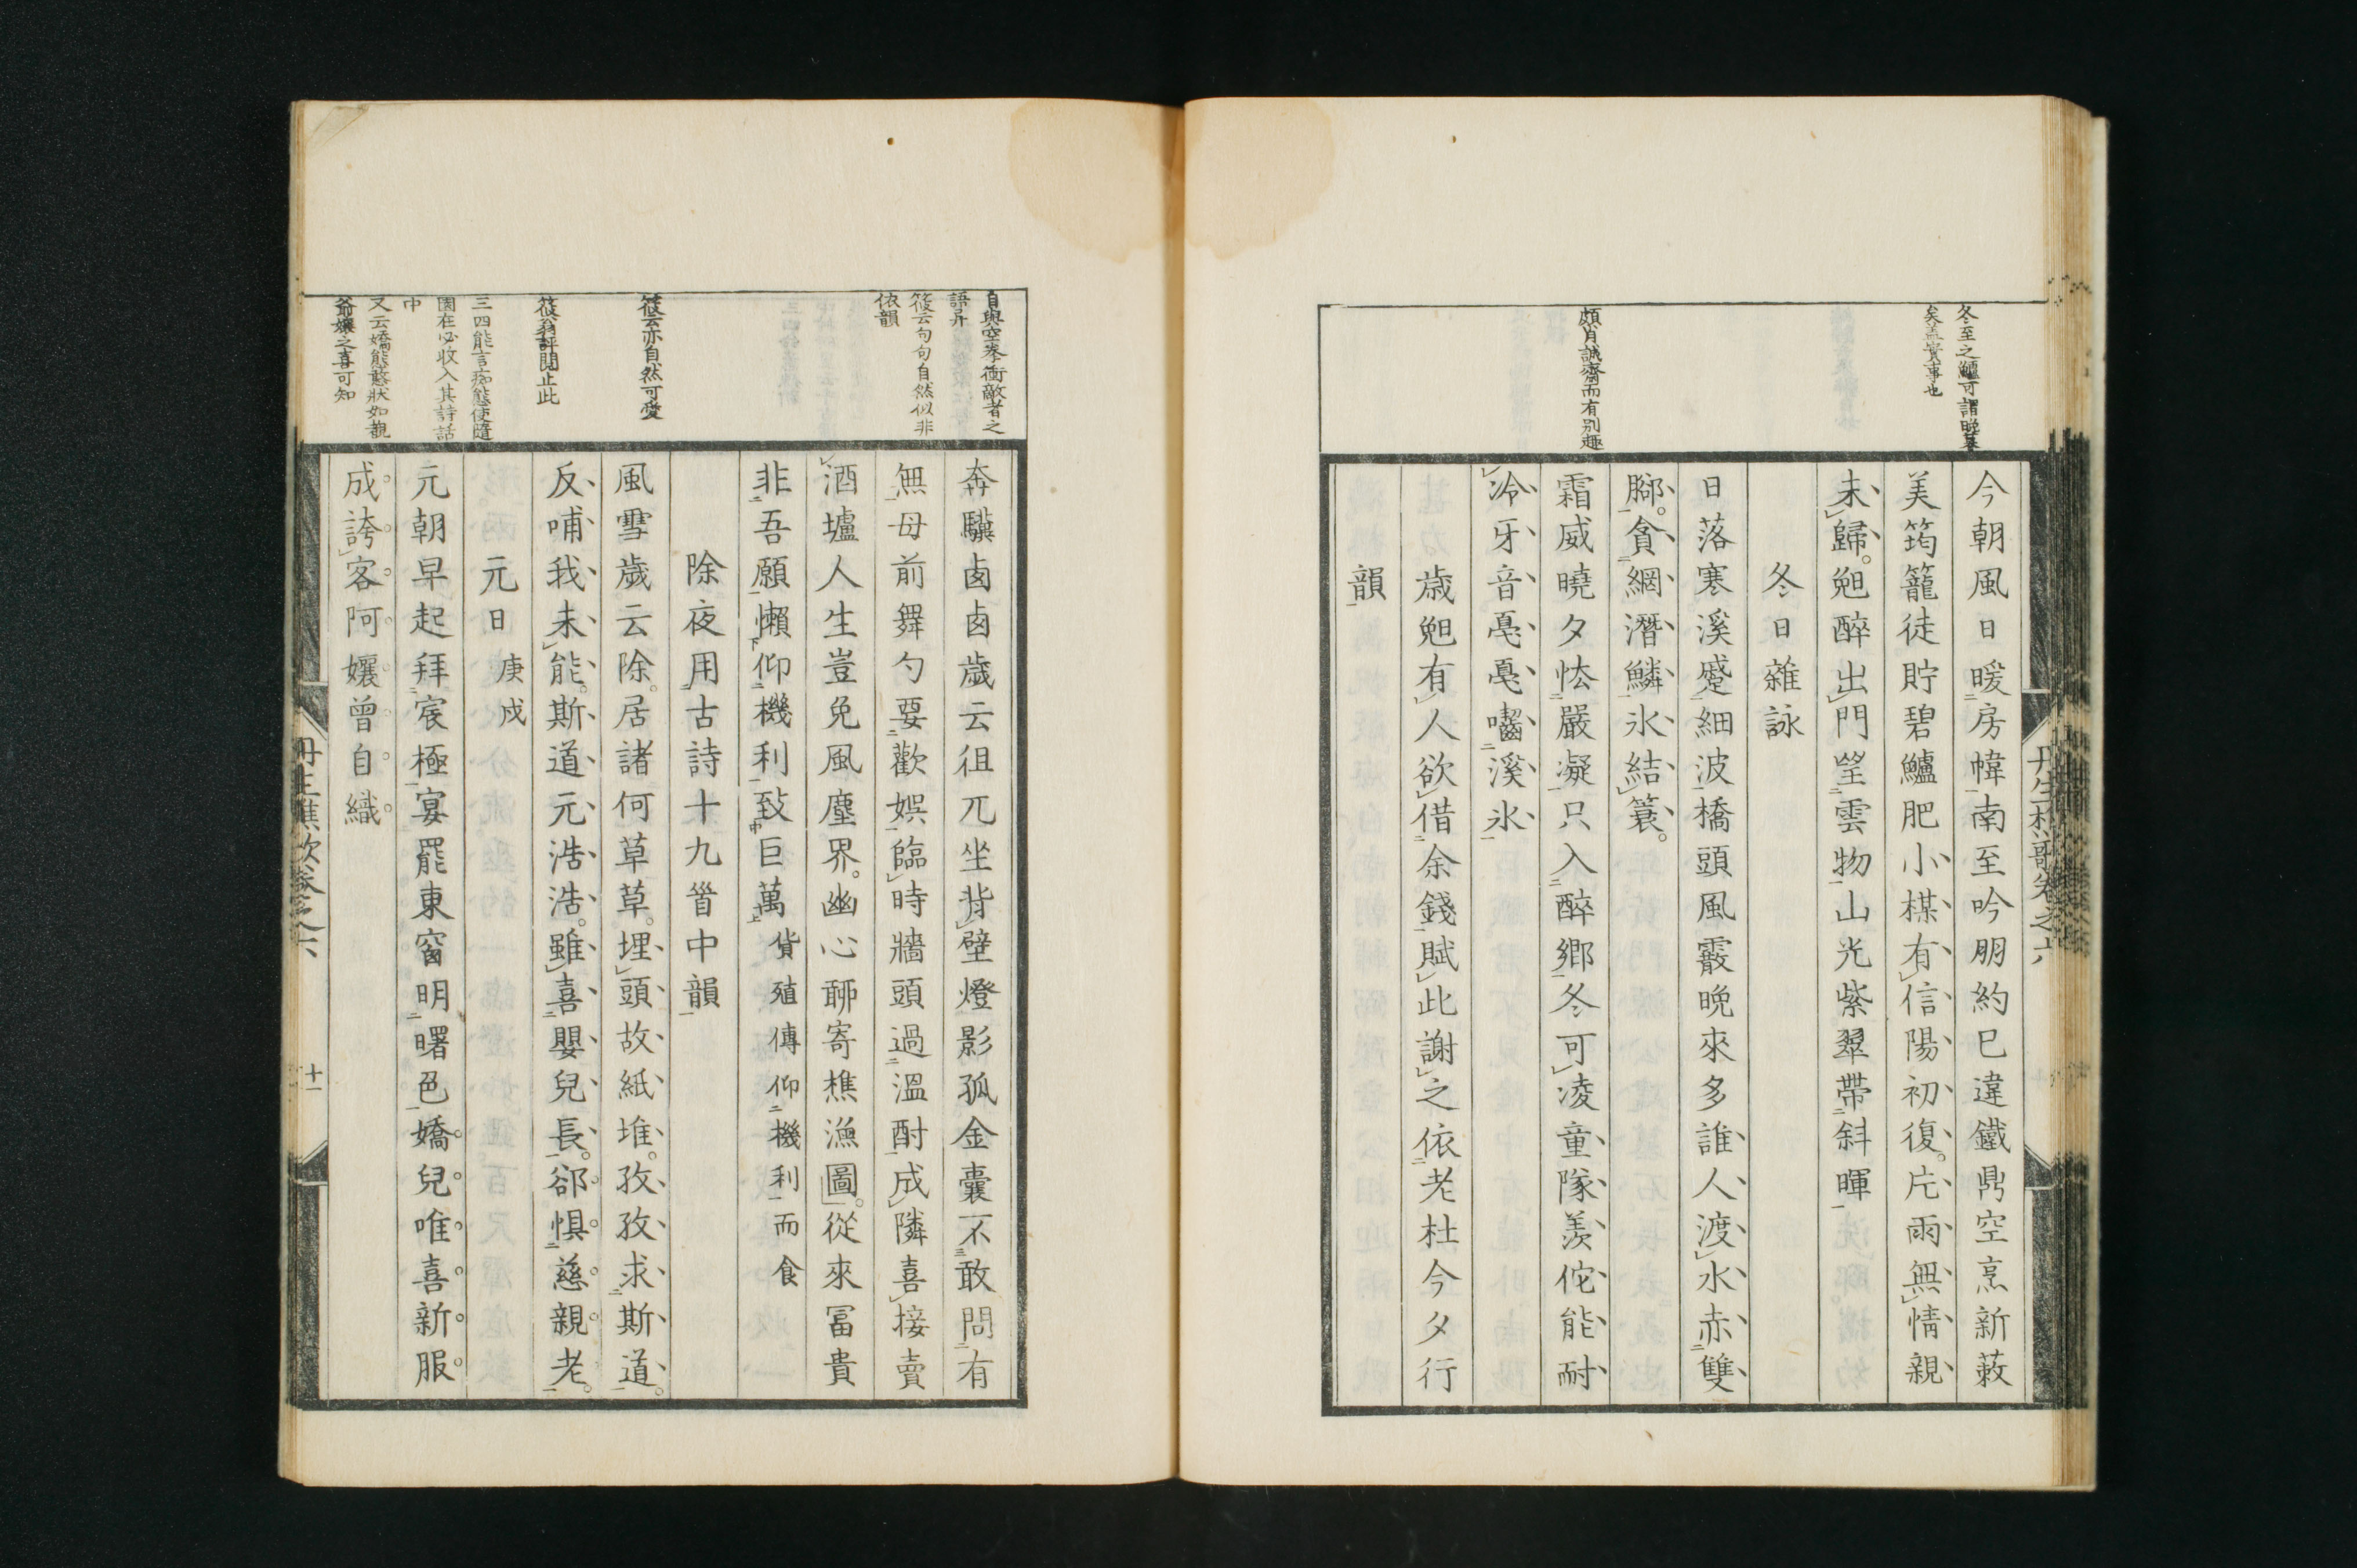 冬至之鱸可謂晩暮
矣盖實事也
頗肖誠齋而有別趣
今朝風日暖房幃南至吟朋約已違鐵鼎空烹新蔌
美筠籠徒貯碧鱸肥小楳有信陽初復片雨無情親
未歸兜醉出門望雲物山光紫翠帶斜暉
冬日雜詠
日落寒溪蹙細波橋頭風霰晩來多誰人渡水赤雙
腳貪網潛鱗氷結蓑
霜威曉夕怯嚴凝只入醉鄉冬可凌童隊羨佗能耐
冷牙音戞戞囓溪氷
歲兜有人欲借余錢賦此謝之依老杜今夕行
韻
丹生樵歌卷之六
自與空拳衝敵者之
語异
筱云句句自然似非
依韻
筱云亦自然可愛
筱翁評閲止此
三四能言痴態使隨
園在必收入其詩話
中
又云嬌態憨狀如覩
爺孃之喜可知
奔驥鹵鹵歲云徂兀坐背壁燈影孤金囊不敢問有
無母前舞勺要歡娯臨時牆頭過溫酎成隣喜接賣
酒壚人生豈免風塵界幽心聊寄樵漁圖從來冨貴
非吾願懶仰機利致巨萬貨殖傳仰機利而食
除夜用古詩十九首中韻
風雪歲云除居諸何草草埋頭故紙堆孜孜求斯道
反哺我未能斯道元浩浩雖喜嬰兒長郤惧慈親老
元日 庚戌
元朝早起拜宸極宴罷東窗明曙色嬌兒唯喜新服
成誇客阿孃曾自織
丹生樵歌卷之六
十一